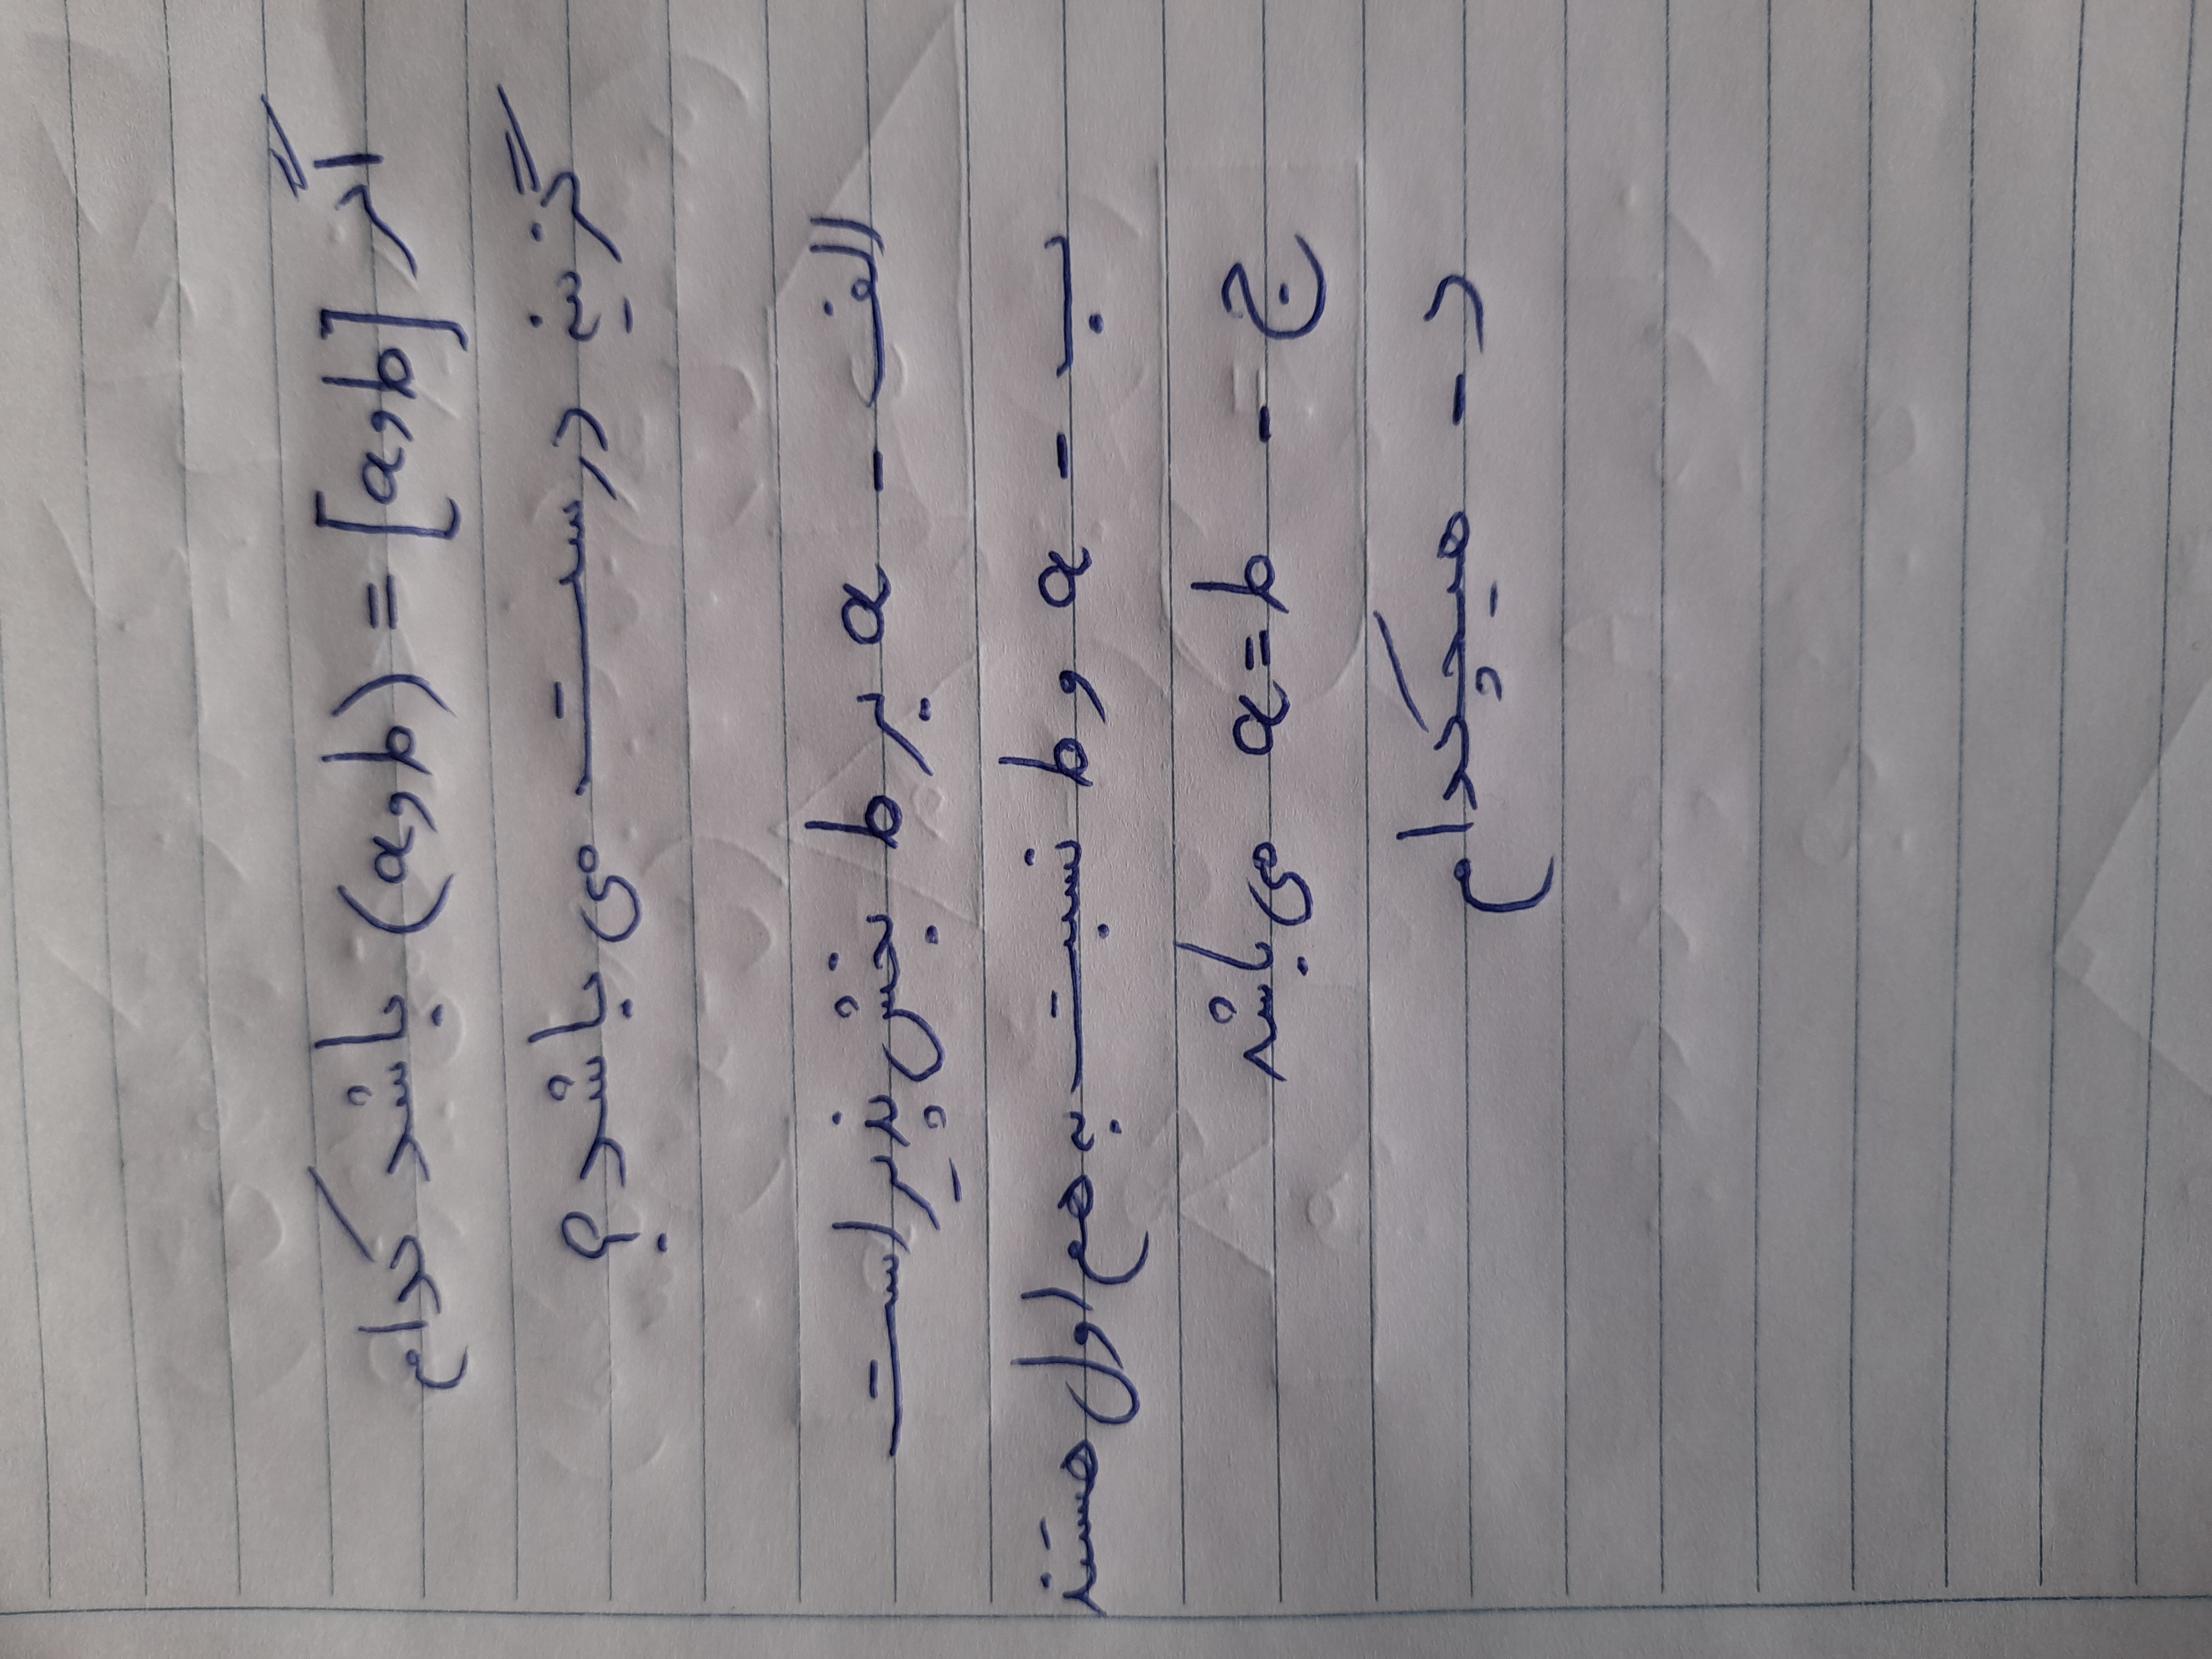 اگر [a,b] = (a,b) باشد کدام
گزینه درست می باشد؟
الف - a بر b بخش پذیر است
ب - a و b نسبت به هم اول هستند
ج - a=b می باشد
د - هیچکدام